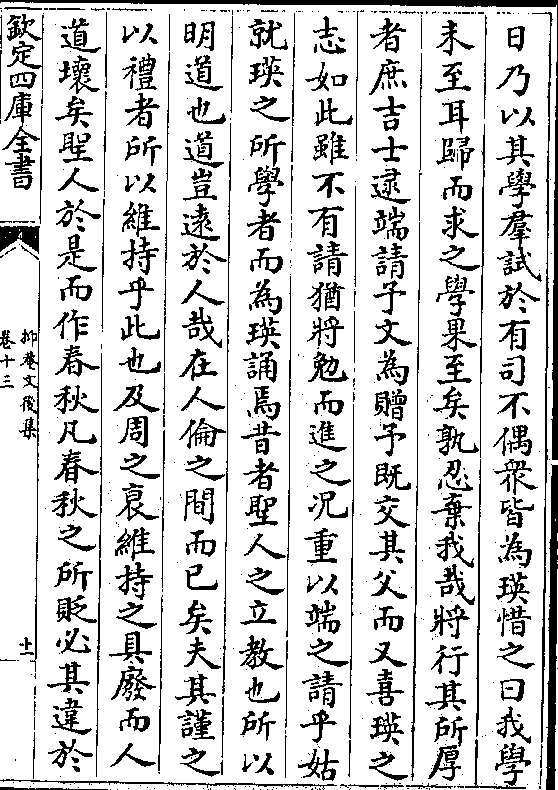 日乃以其學羣試於有司不偶衆皆為瑛惜之曰我學
未至耳歸而求之學果至矣孰忍棄我哉將行其所厚
者庶吉士逯端請予文為贈予既交其父而又喜瑛之
志如此雖不有請猶將勉而進之况重以端之請乎姑
就瑛之所學者而為瑛誦焉昔者聖人之立教也所以
明道也道豈遠於人哉在人倫之間而已矣夫其謹之
以禮者所以維持乎此也及周之衰維持之具廢而人
道壞矣聖人於是而作春秋凡春秋之所貶必其違於
欽定四庫全書
抑菴文後集
卷十三
十一